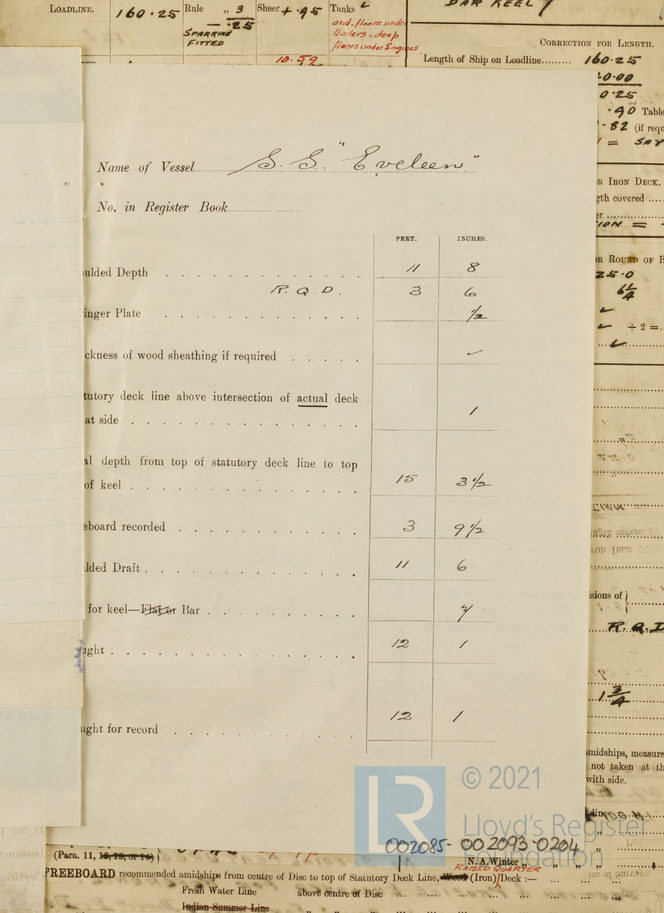 LOADLINE. 160.25 Rule „ 3 Sheer + .95 Tanks
- .25
SPARRING
FITTED
ord. floors under
Boilers & deep
floors under Engines
10.59
BAR KEEL
CORRECTION FOR LENGTH.
Length of Ship on Loadline......... 160.25
0.25
.90 Table
.82 (if requ
= SAY
R IRON DECK.
gth covered ....
er
ION =
OR ROUND OF
25.0
6¼
÷ 2 =
Name of Vessel S.S. "Eveleen"
No. in Register Book
FEET. INCHES.
ulded Depth . . . . . . . . . . . . 11 8
R.Q.D. 3 6
inger Plate . . . . . . . . . . . . ½
ckness of wood sheathing if required . . . . . ✓
tutory deck line above intersection of actual deck
at side . . . . . . . . . . . . . 1
al depth from top of statutory deck line to top
of keel . . . . . . . . . . . . . 15 3½
eboard recorded . . . . . . . . . . . 3 9½
lded Draft . . . . . . . . . . . . 11 6
for keel—Flat or Bar . . . . . . . . .
ught . . . . . . . . . . . . . . 12 1
ught for record . . . . . . . . . . 12 1
isions of
R.Q.D
1 ¾
amidships, measure
not taken at th
with side.
© 2021
LR
Lloyd's Register
Foundation
002085-002093-0204
(Para. 11, 12, 13, or 14)
N.A. Winter „
RAISED QUARTER
FREEBOARD recommended amidships from centre of Disc to top of Statutory Deck Line, Wood (Iron) Deck :—
Fresh Water Line above centre of Disc
Indian Summer Line